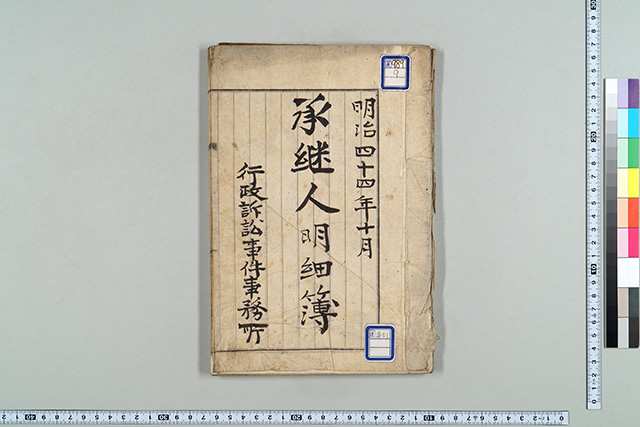 明治四十四年十月
承継人明細簿
行政訴訟事件事務所
989
9